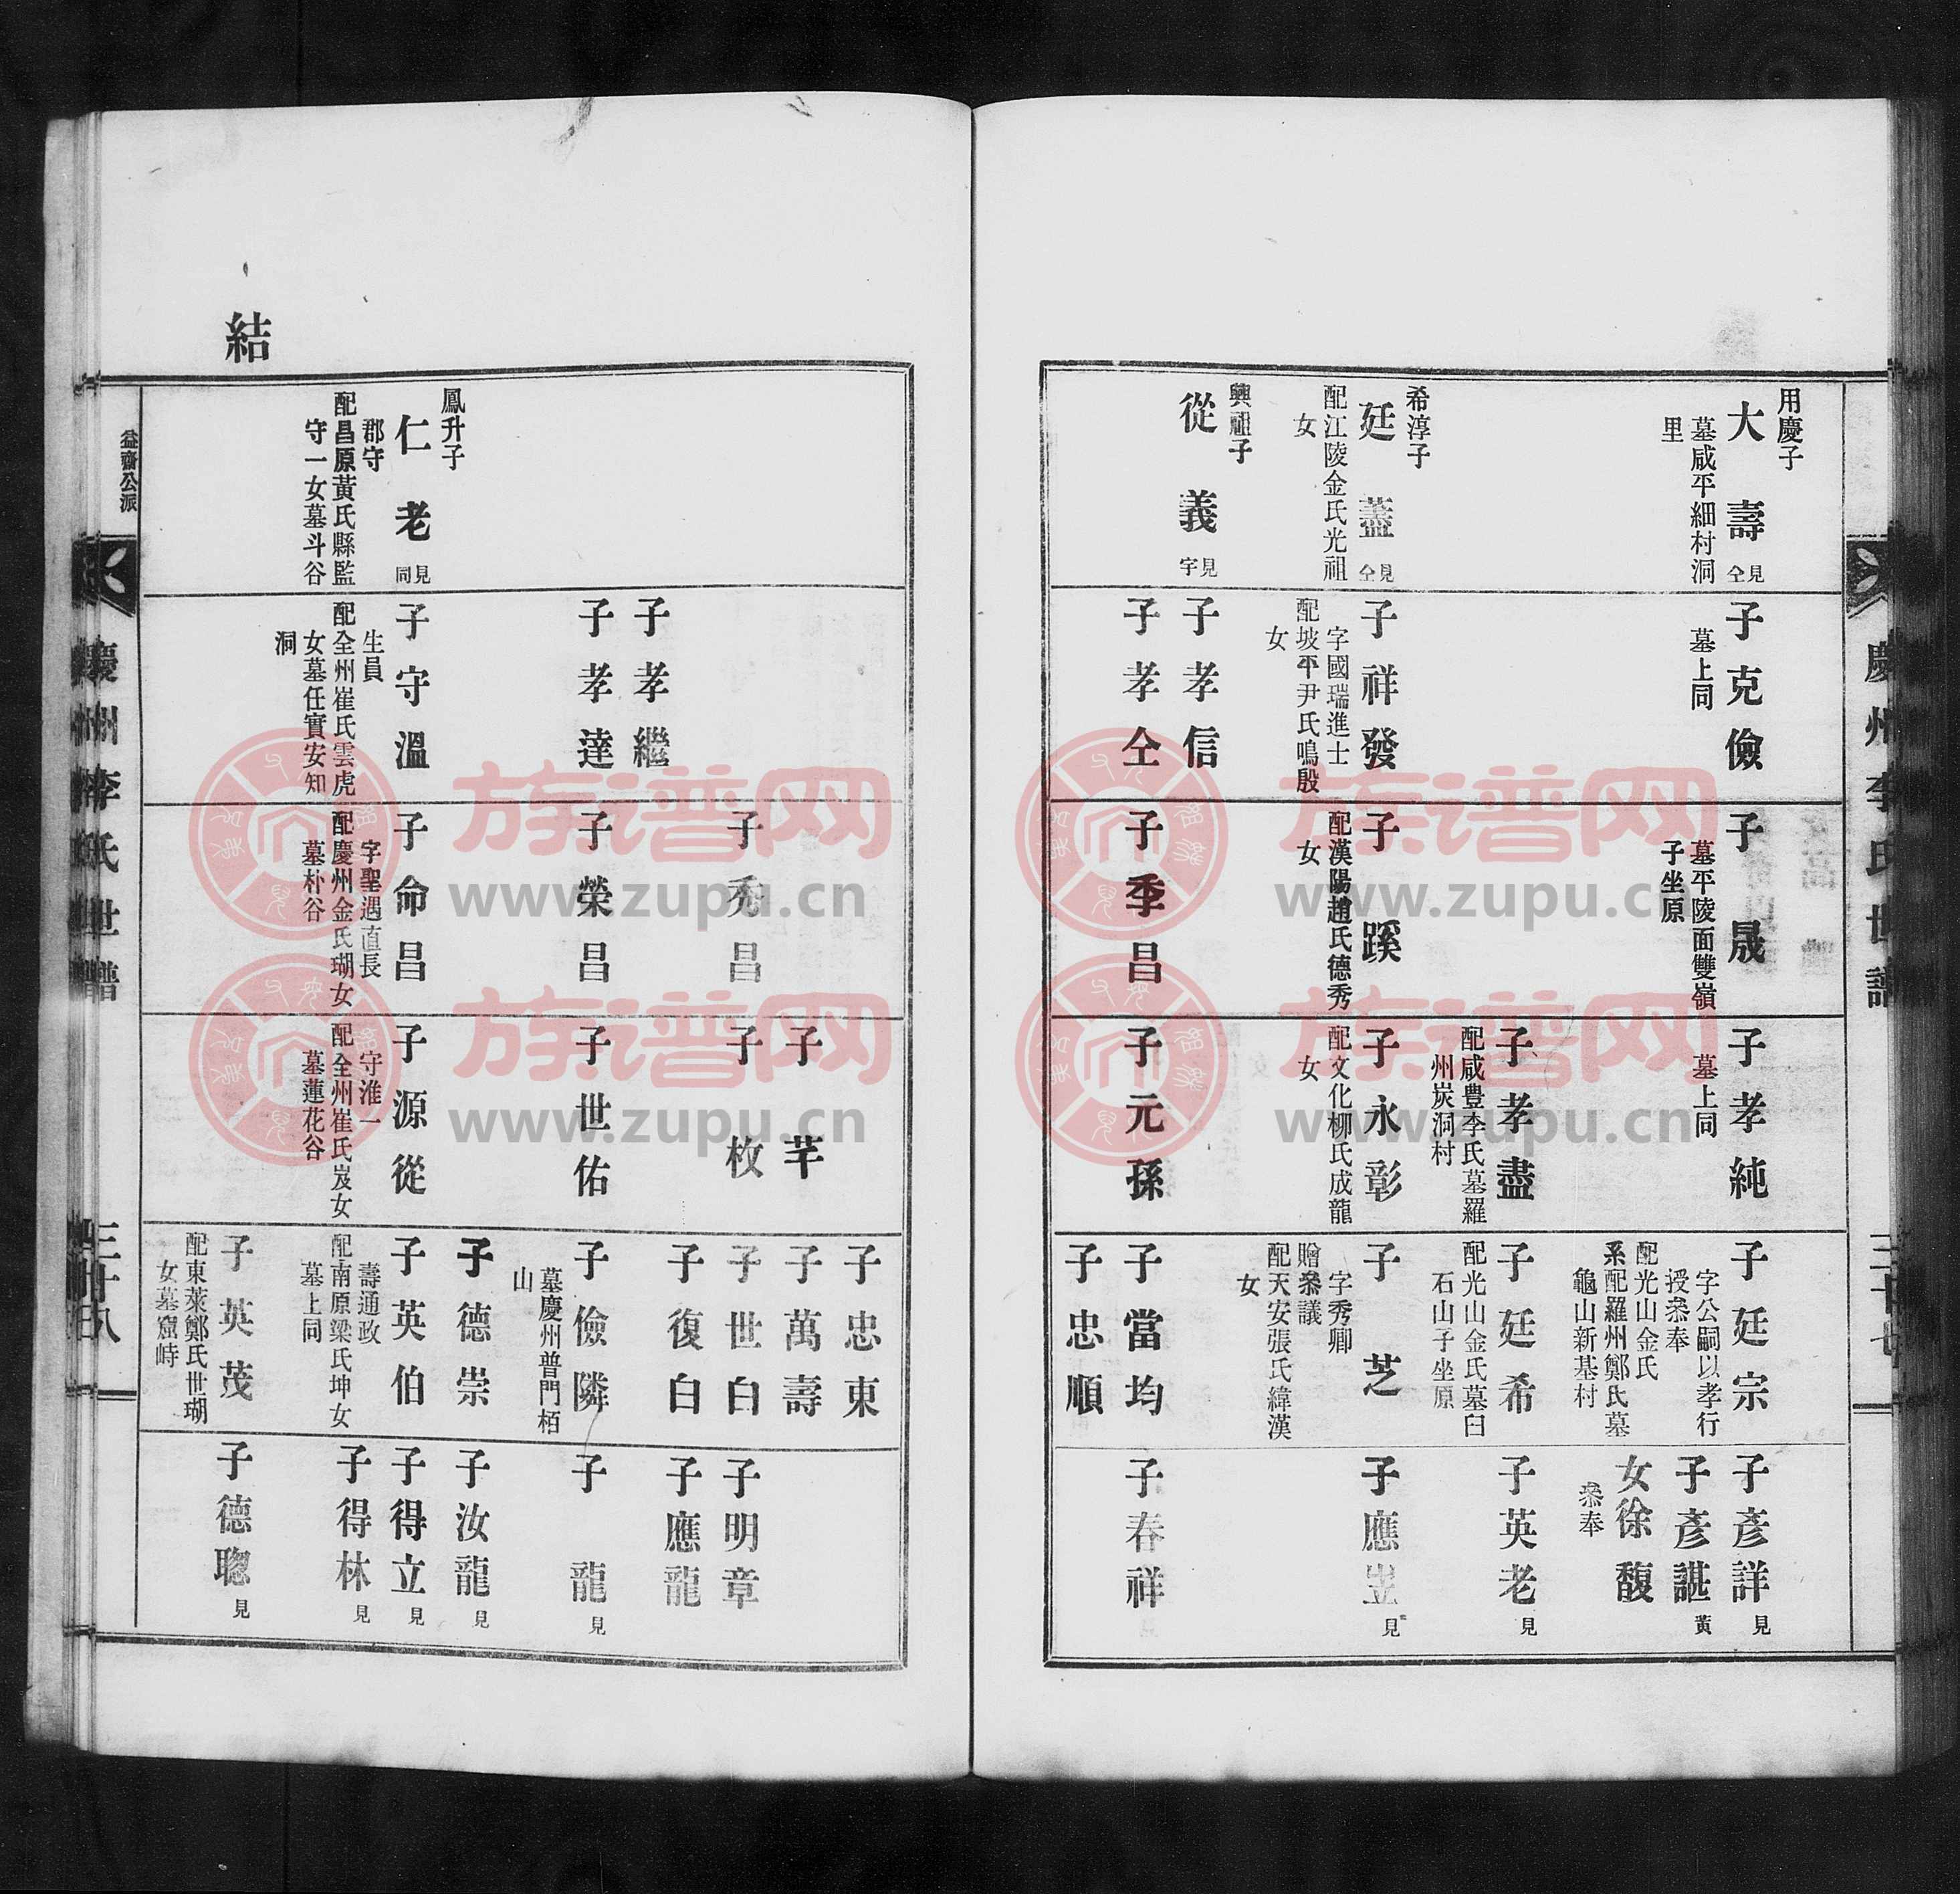 慶州李氏世譜
三十七
用慶子
大壽
見仝
墓咸平細村洞
里
希淳子
廷藎
見仝
配江陵金氏光祖
女
興祖子
從義
見字
子克儉
墓上同
子祥發
字國瑞進士
配坡平尹氏鳴殷
女
子孝信
子孝仝
子晟
墓平陵面雙嶺
子坐原
子蹊
配漢陽趙氏德秀
女
子季昌
子孝純
墓上同
子孝盡
配咸豊李氏墓羅
州炭洞村
子永彰
配文化柳氏成龍
女
子元孫
子廷宗
字公嗣以孝行
授叅奉
配光山金氏
系配羅州鄭氏墓
龜山新基村
子廷希
配光山金氏墓臼
石山子坐原
子芝
字秀卿
贈叅議
配天安張氏緯漢
女
子當均
子忠順
子彥詳
見
子彥諶
黃
女徐馥
叅奉
子英老
見
子應岦
見
子春祥
結
鳳升子
仁老
見同
郡守
配昌原黃氏縣監
守一女墓斗谷
子孝繼
子孝達
子守溫
生員
配全州崔氏雲虎
女墓任實安知
洞
子秀昌
子榮昌
子命昌
字聖遇直長
配慶州金氏瑚女
墓朴谷
子芊
子枚
子世佑
子源從
守淮一
配全州崔氏岌女
墓蓮花谷
子忠東
子萬壽
子世白
子復白
子儉隣
墓慶州普門栢
山
子德崇
子英伯
壽通政
配南原梁氏坤女
墓上同
子英茂
配東萊鄭氏世瑚
女墓窟峙
子明章
子應龍
子龍
見
子汝龍
見
子得立
見
子得林
見
子德聰
見
益齋公派
慶州李氏世譜
三十八
族谱网
www.zupu.cn
族谱网
www.zupu.cn
族谱网
www.zupu.cn
族谱网
www.zupu.cn